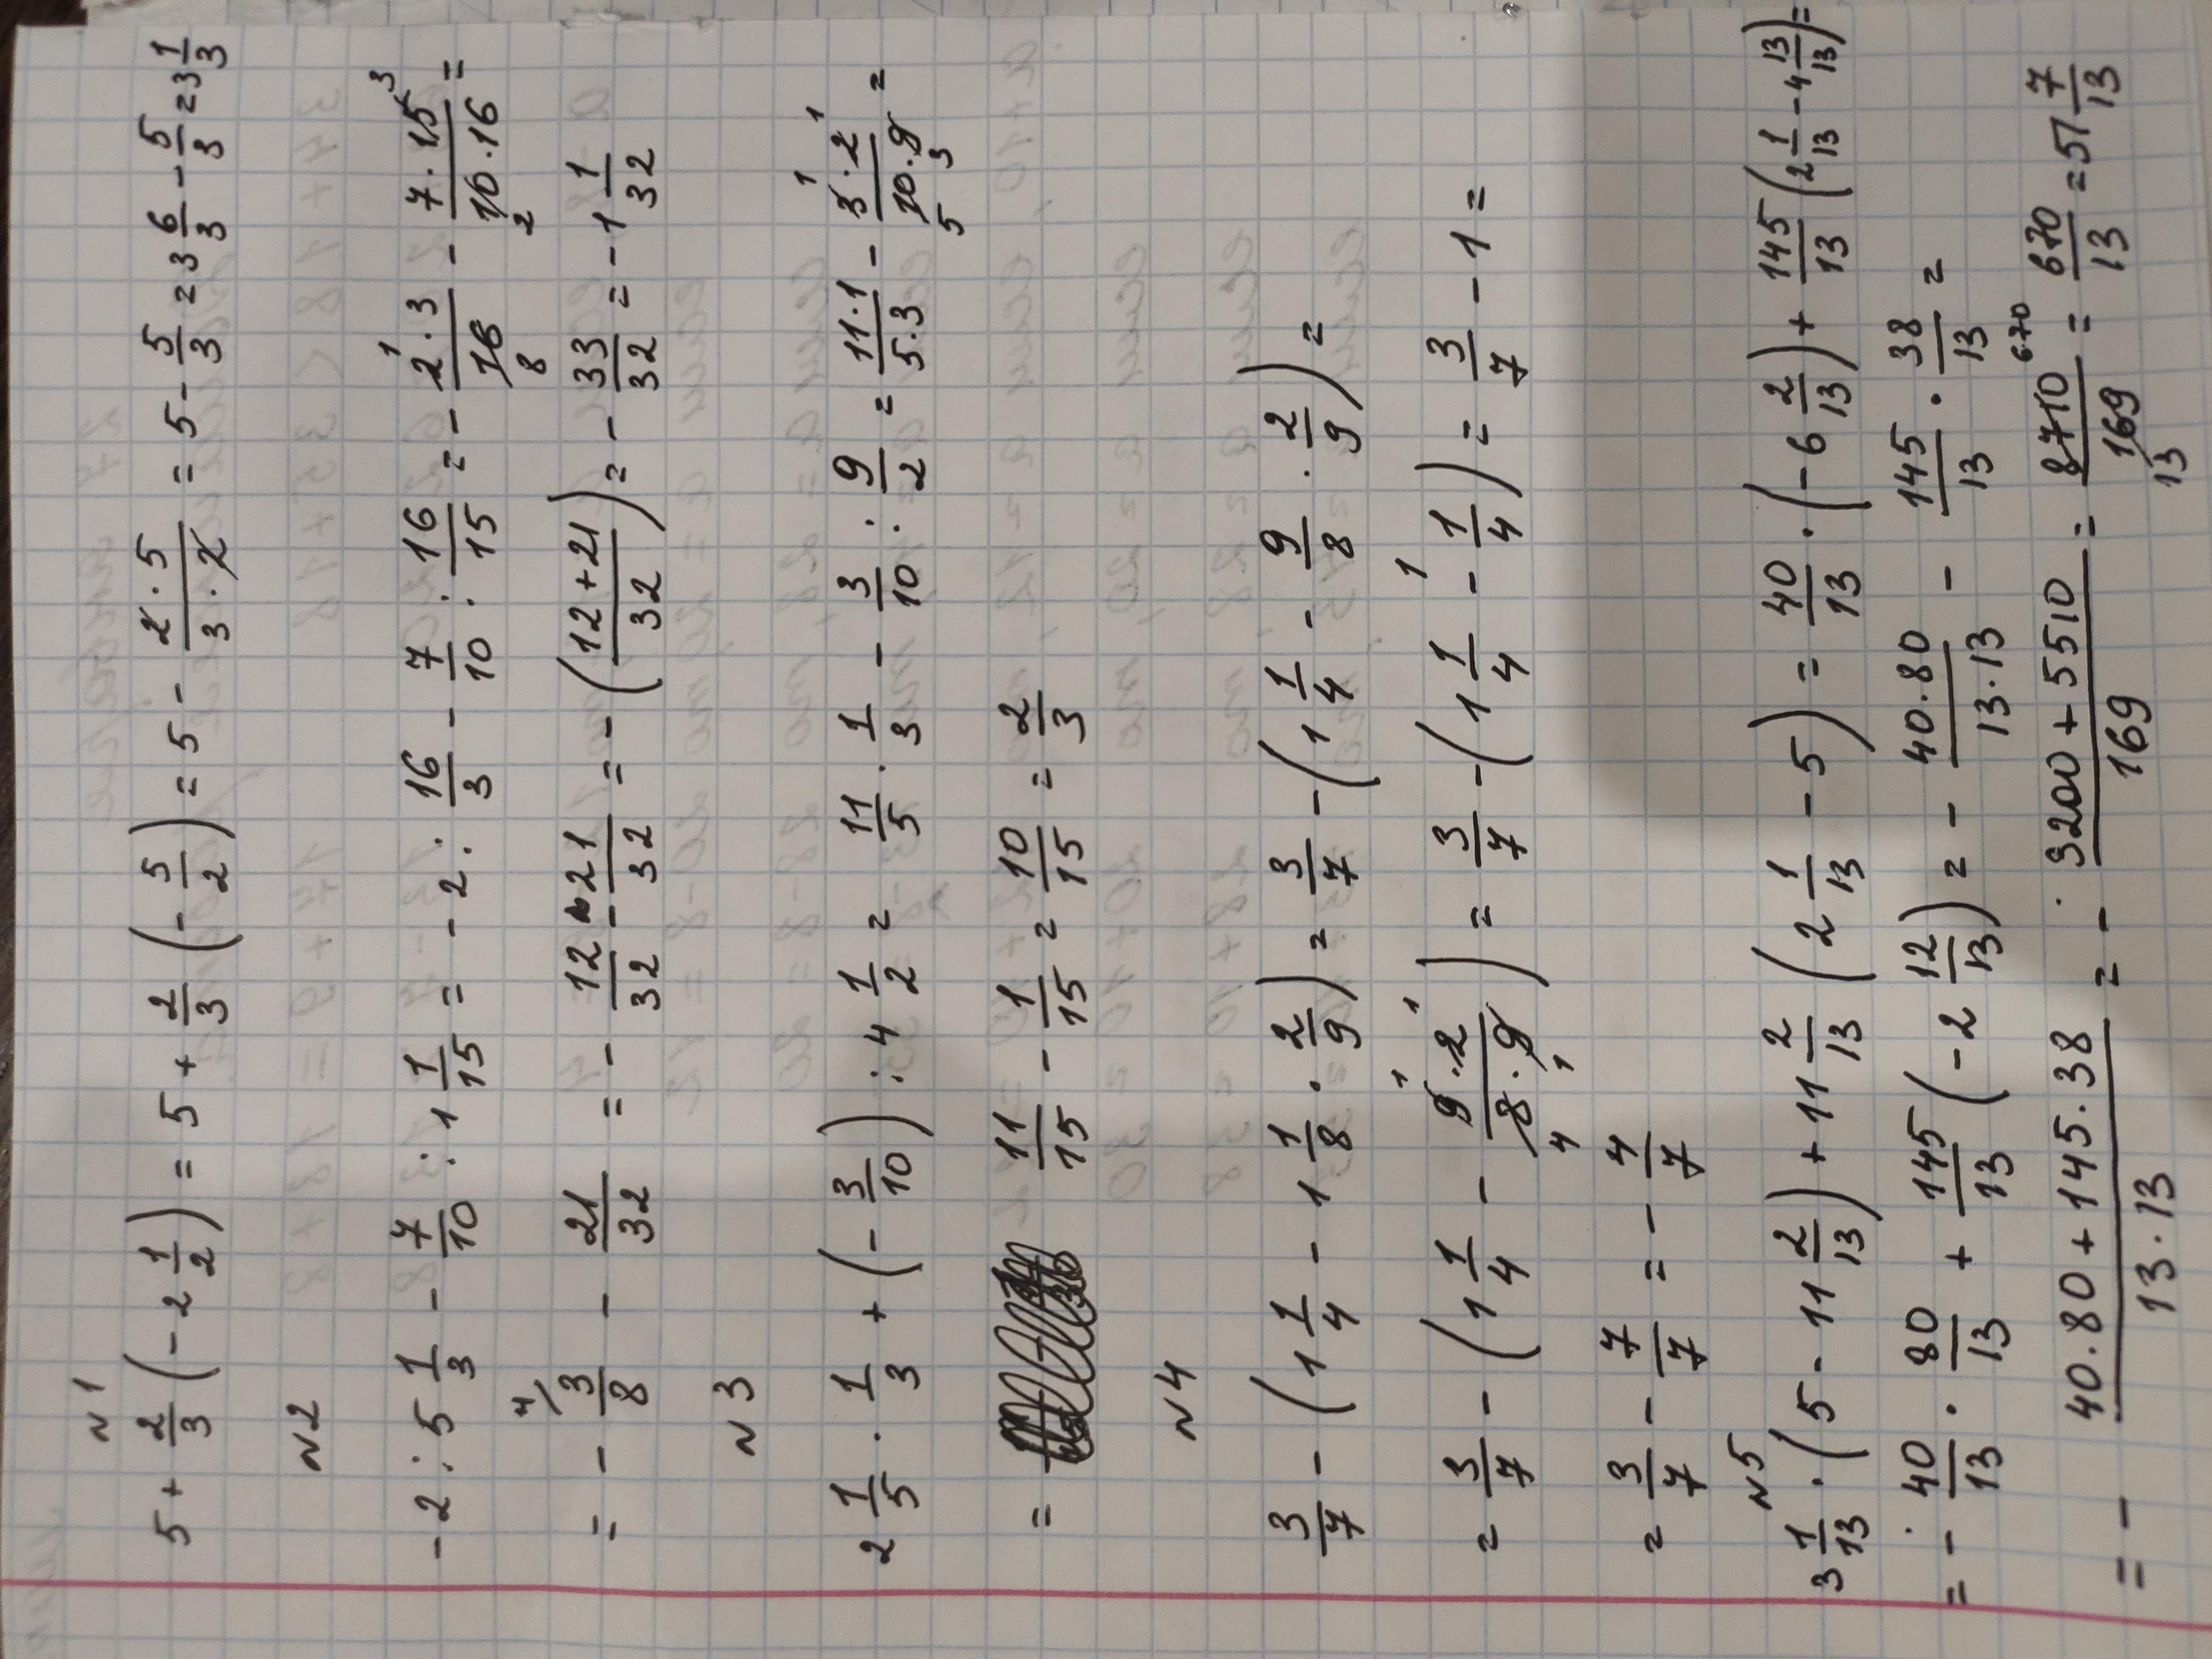 N1
5 + 2/3 (- 2 1/2) = 5 + 2/3 (- 5/2) = 5 - 2·5/3·2 = 5 - 5/3 = 3 6/3 - 5/3 = 3 1/3
N2
- 2 : 5 1/3 - 7/10 : 1 1/15 = - 2 : 16/3 - 7/10 : 16/15 = - 2·3/16 - 7·15/10·16 =
= - 3/8 - 21/32 = - 12/32 - 21/32 = - (12+21/32) = - 33/32 = - 1 1/32
N3
2 1/5 · 1/3 + (- 3/10) : 4 1/2 = 11/5 · 1/3 - 3/10 : 9/2 = 11·1/5·3 - 3·2/10·9 =
= 11/15 - 1/15 = 10/15 = 2/3
N4
3/7 - (1 1/4 - 1 1/8 · 2/9) = 3/7 - (1 1/4 - 9/8 · 2/9) =
= 3/7 - (1 1/4 - 9·2/8·9) = 3/7 - (1 1/4 - 1/4) = 3/7 - 1 =
= 3/7 - 7/7 = - 4/7
N5
3 1/13 · (5 - 11 2/13) + 11 2/13 (2 1/13 - 5) = 40/13 · (- 6 2/13) + 145/13 (2 1/13 - 4 13/13) =
= - 40/13 · 80/13 + 145/13 (- 2 12/13) = - 40·80/13·13 - 145/13 · 38/13 =
= - 40·80+145·38/13·13 = - 3200+5510/169 = 8710/169 = 670/13 = 51 7/13